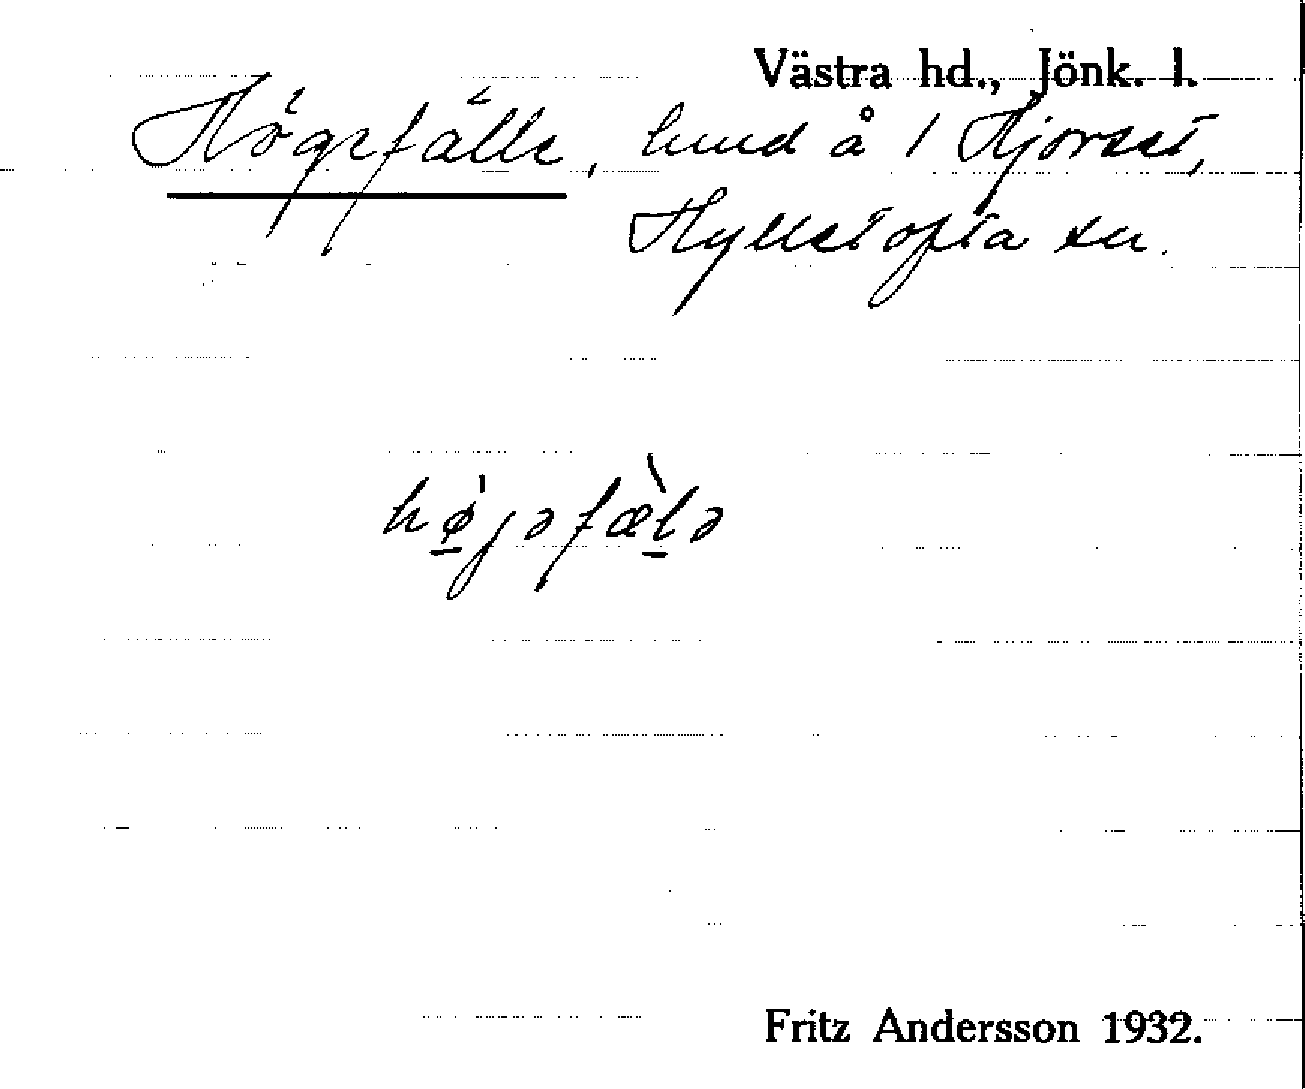 Västra hd., Jönk. l.
Högefälle, lund å 1 Hjorset,
Hylletofta sn.
hø̠̀jəfæ̀l̠ə
Fritz Andersson 1932.